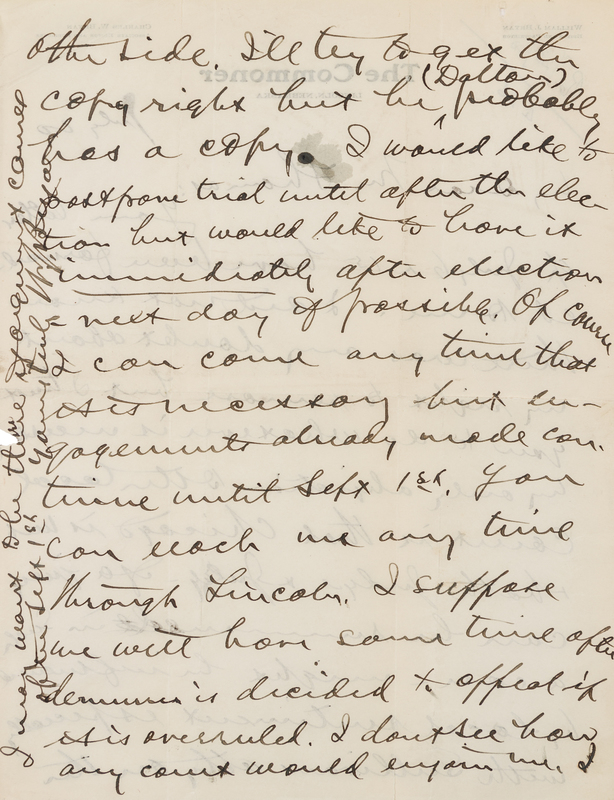 other side. I'll try to get the
(Dalton)
copy right but he probably
has a copy. I would like to
postpone trial until after the elec-
tion but would like to have it
immediately after election
- next day if possible. Of course
I can come any time that
it is necessary but en-
gagements already made con-
tinue until Sept 1st. You
can reach me any time
through Lincoln. I suppose
we will have some time after
demurrer is decided to appeal if
it is overruled. I dont see how
any court would enjoin me. I
I may want to be there to argue it comes
before Sept 1st Yours truly WJBryan